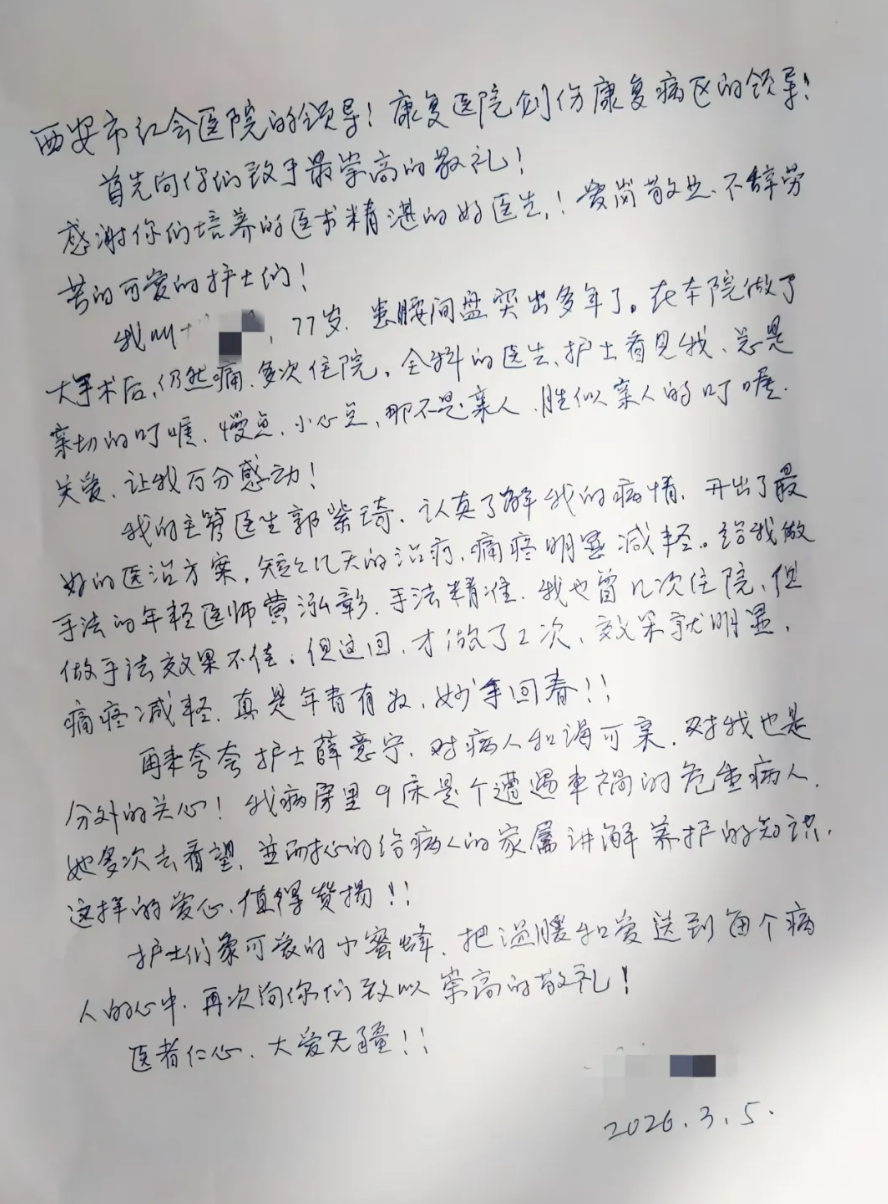 西安市红会医院的领导！康复医院创伤康复病区的领导！
首先向你们致于最崇高的敬礼！
感谢你们培养的医术精湛的好医生！爱岗敬业、不辞劳
苦的可爱的护士们！
我叫 ，77岁，患腰间盘突出多年了。在本院做了
大手术后，仍然痛，多次住院，全科的医生、护士看见我、总是
亲切的叮嘱，慢点，小心点，那不是亲人，胜似亲人的叮嘱，
关爱，让我万分感动！
我的主管医生郭紫琦，认真了解我的病情，开出了最
好的医治方案，短短几天的治疗，痛疼明显减轻。给我做
手法的年轻医师黄泓彰，手法精准，我也曾几次住院，但
做手法效果不佳。但这回，才做了2次，效果就明显，
痛疼减轻，真是年青有为，妙手回春！！
再来夸夸护士薛意宁，对病人和谒可亲，对我也是
分外的关心！我病房里9床是个遭遇车祸的危重病人，
她多次去看望，並耐心的给病人的家属讲解养护的知识，
这样的爱心，值得赞扬！！
护士们象可爱的小蜜蜂，把温暖和爱送到每个病
人的心中，再次向你们致以崇高的敬礼！
医者仁心，大爱无疆！！
2026.3.5.